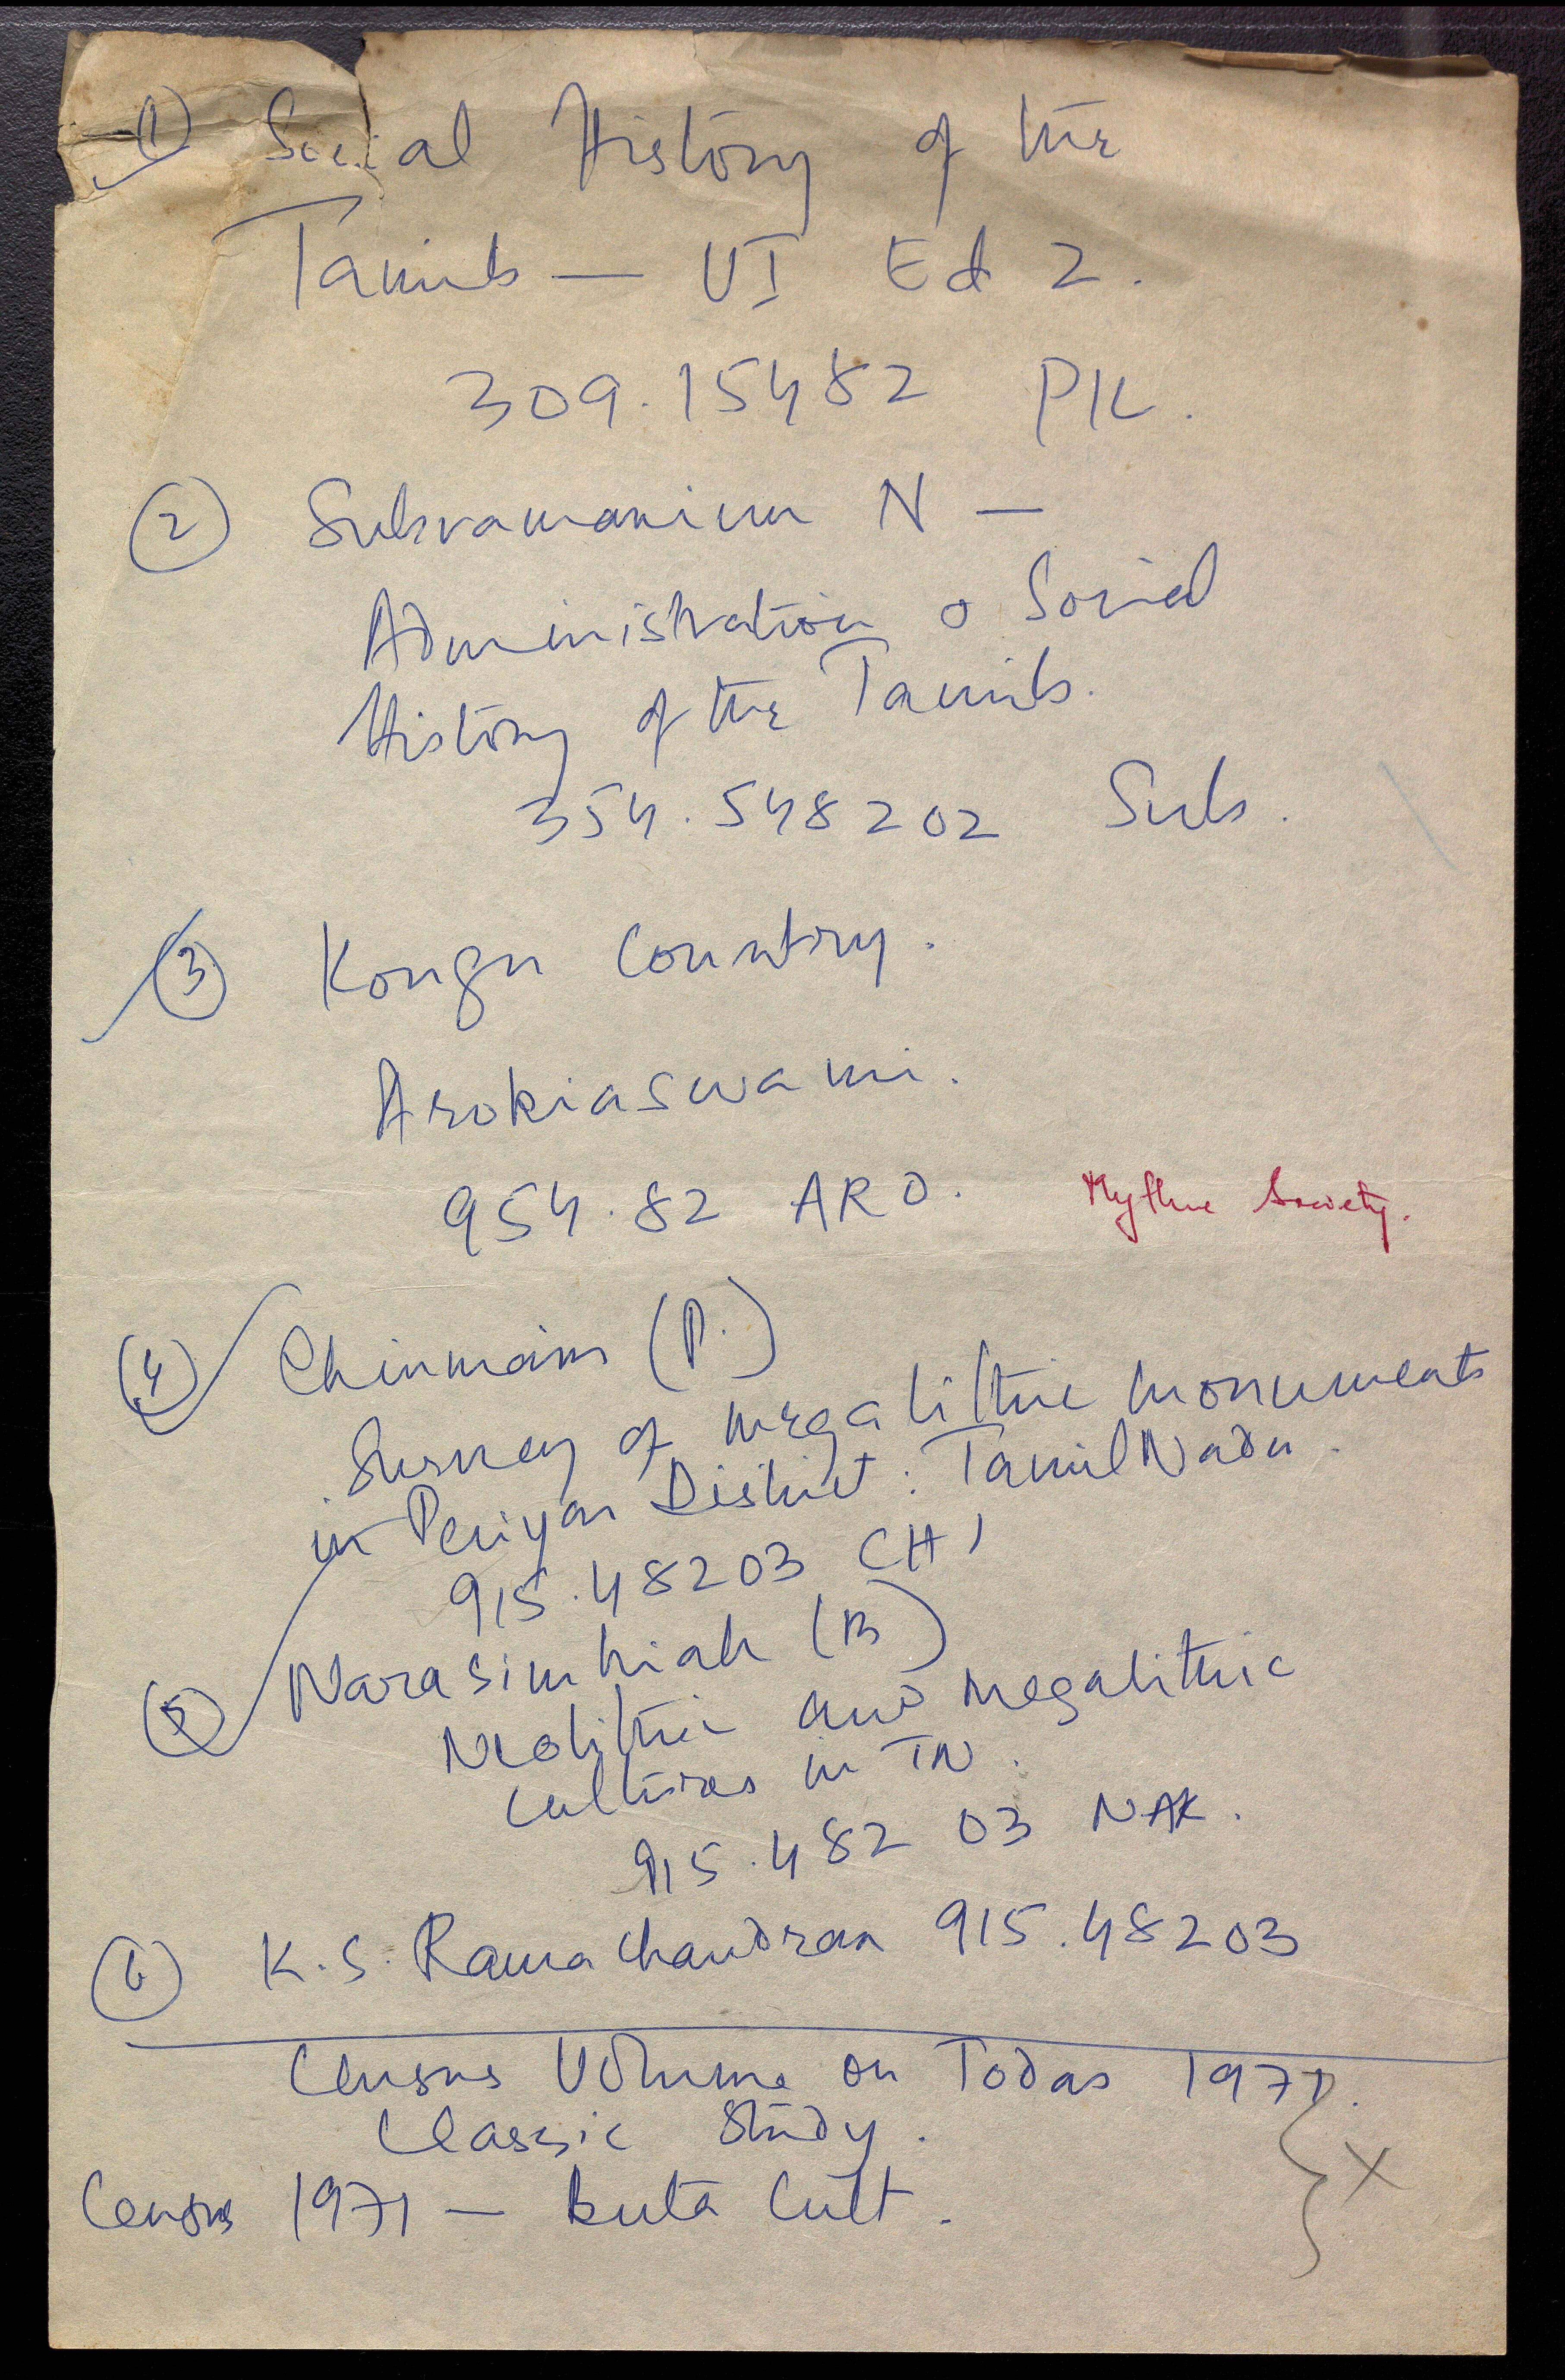 ① Social History of the
Tamils — VI Ed 2.
309.15482 PIL.
② Subramanium N —
Administration & Social
History of the Tamils.
354.548202 Sub.
③ Kongu Country.
Arokiaswami.
954.82 ARO.
Mythic Society.
④ Chinmain (P.)
Survey of megalithic monuments
in Periyar District: TamilNadu.
915.48203 CHI
⑤ Narasimhiah (B)
Neolithic and megalithic
Cultures in TN.
915.482 03 NAR.
⑥ K.S. Ramachandran 915.48203
Census Volume on Todas 1971.
Classic Study.
Census 1971 — buta Cult.
X